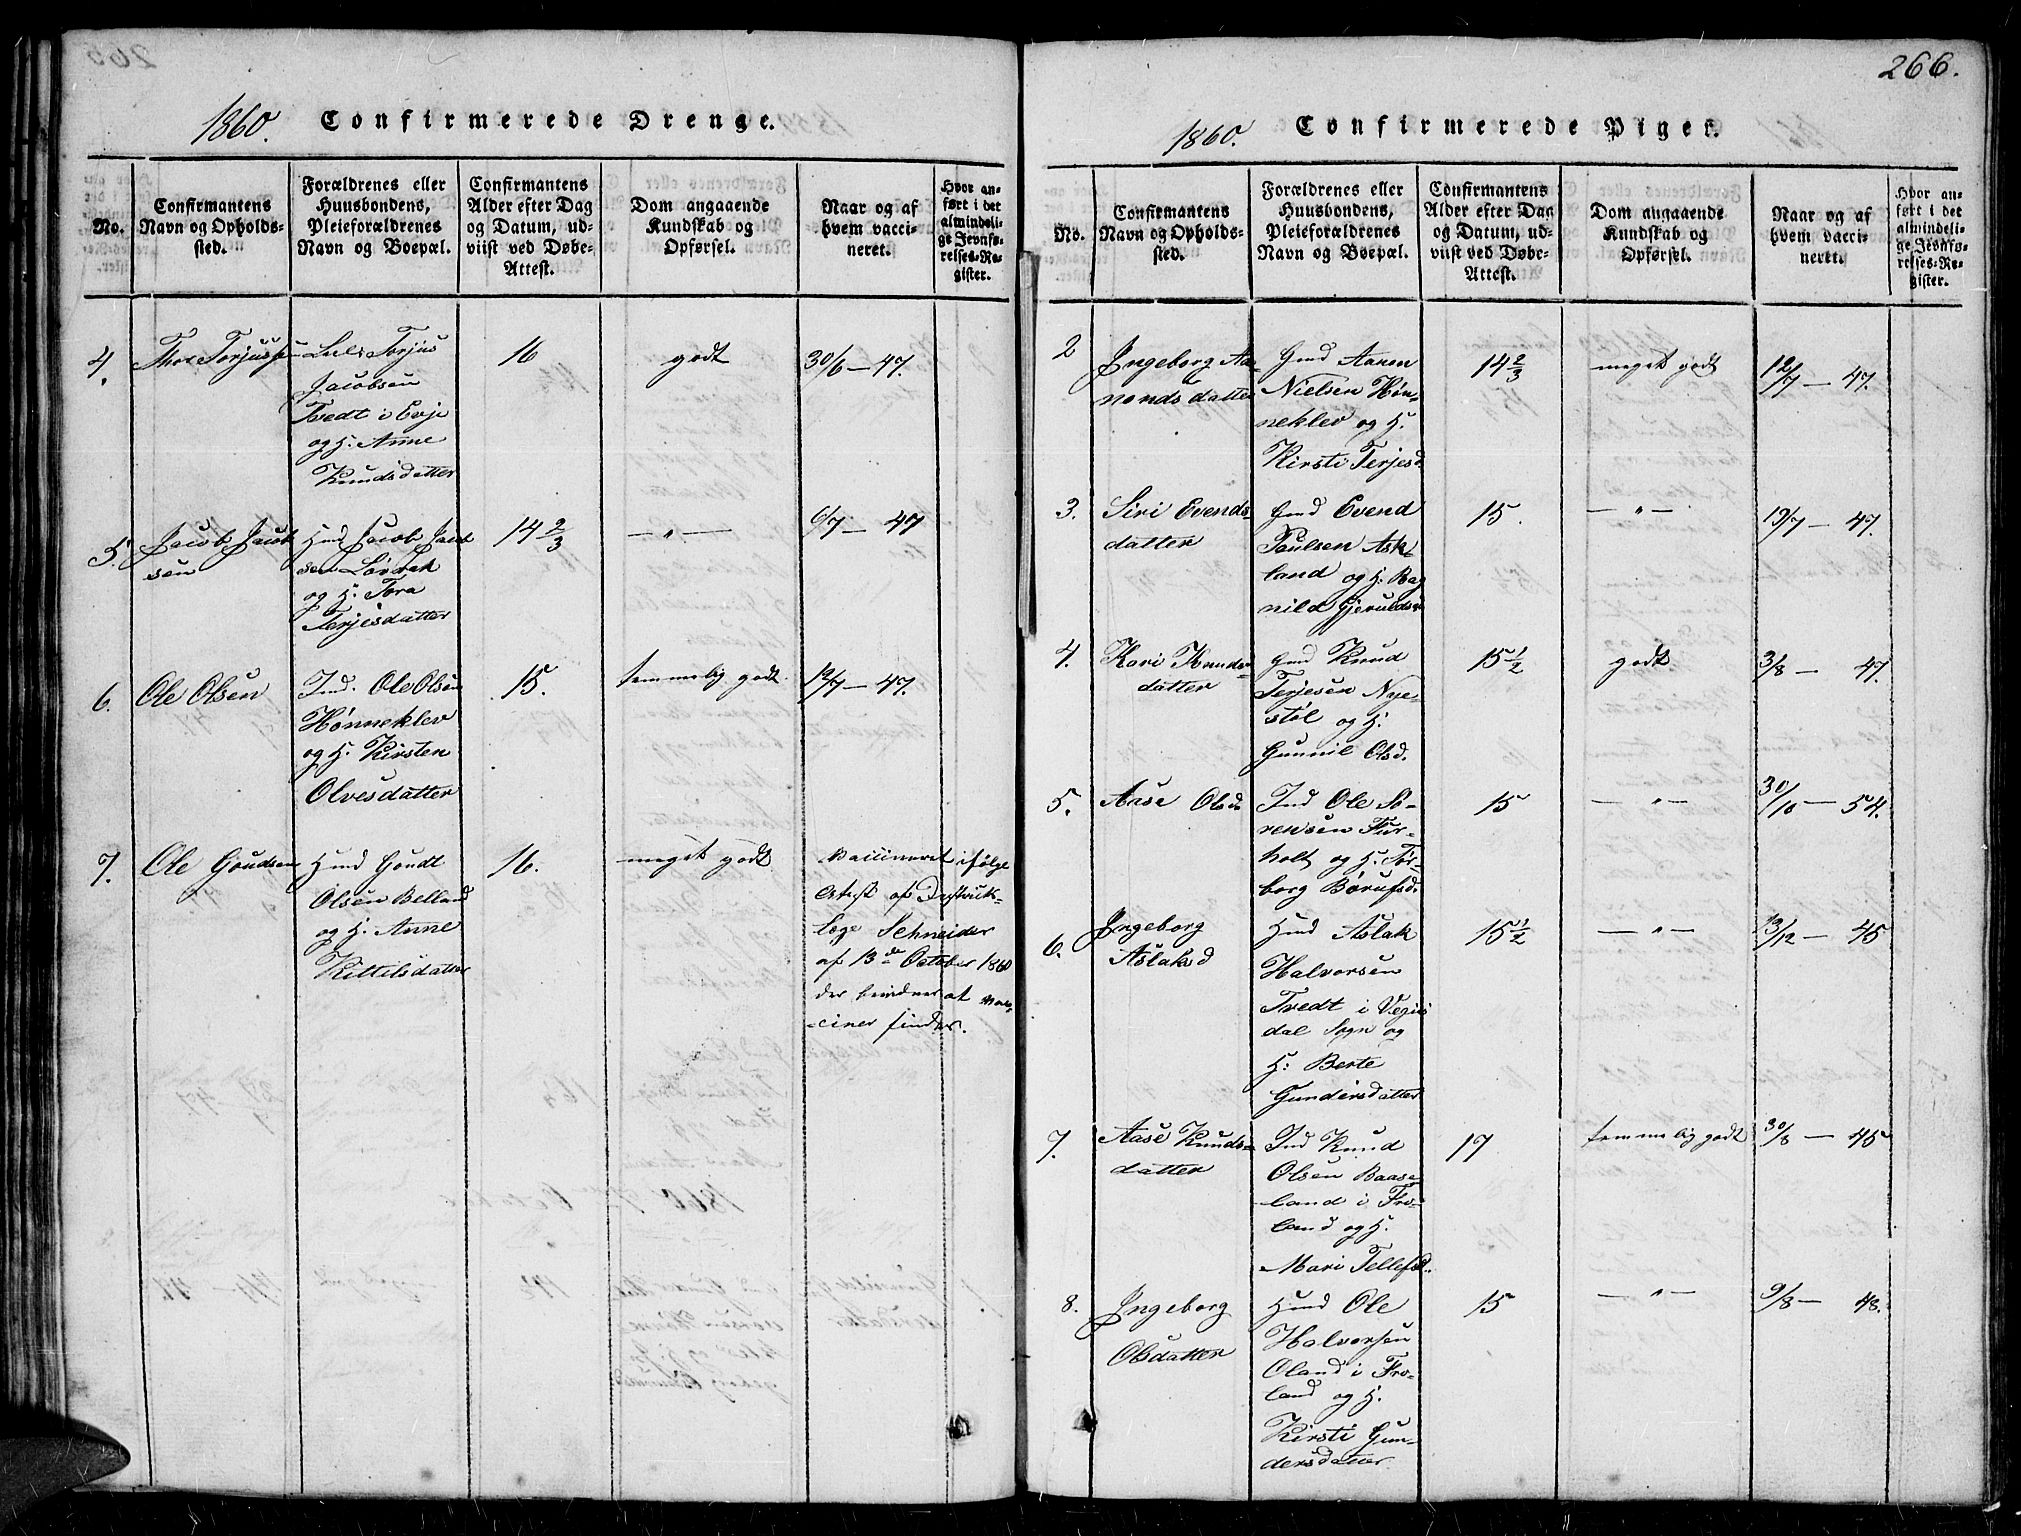 1860. Confirmerede Drenge.
No.
Confirmantens
Navn og Opholds-
sted.
Forældrenes eller
Huusbondens,
Pleieforældrenes
Navn og Boepæl.
Confirmantens
Alder efter Dag
og Datum, ud-
viist ved Døbe-
Attest.
Dom angaaende
Kundskab og
Opførsel.
Naar og af
hvem vacci-
neret.
Hvor an-
ført i det
almindeli-
ge Jevnfø-
relses-Re-
gister.
4. Thore Torjussen
Torjus
Jacobsen
Tvedt i Evje
og H. Anne
Knudsdatter
16 godt 30/6 – 47.
5. Jacob Jacob
sen
Hmd Jacob Jacob
sen Løvrak
og H. Tora
Terjesdatter
14 2/3 – " – 6/7 – 47
6. Ole Olsen
Ind. Ole Olsen
Hønneklev
og H. Kirsten
Olvesdatter
15. temmelig godt. 12/7 – 47.
7. Ole Gjeudsen
Hmd Gjeudt
Olsen Belland
og H. Anne
Kittilsdatter
16. meget godt
Vaccineret ifølge
Attest af Destrikts-
læge Schneider
af 13de October 1860
der at vac-
ciner findes.
266.
1860. Confirmerede Piger.
No.
Confirmantens
Navn og Opholds-
sted.
Forældrenes eller
Huusbondens,
Pleieforældrenes
Navn og Boepæl.
Confirmantens
Alder efter Dag
og Datum, ud-
viist ved Døbe-
Attest.
Dom angaaende
Kundskab og
Opførsel.
Naar og af
hvem vacci-
neret.
Hvor an-
ført i det
almindeli-
ge Jevnfø-
relses-Re-
gister.
2 Ingeborg Aa-
nondsdatter
Gmd Aanen
Nielsen Høn-
neklev og H.
Kirsti Terjesd
14 2/3 meget godt 12/7 – 47.
3. Siri Evends-
datter
Gmd Evend
Paulsen Ask-
land og H. Rag
nild Gjeruldsd
15. – " – 19/7 – 47.
4. Kari Knuds-
datter
Gmd Knud
Terjesen Nye-
støl og H.
Gunnil Olsd.
15 1/2 godt 3/8 – 47.
5. Aase Olsd.
Ind Ole Sø-
rensen Fur-
holt og H. Tor-
borg Børufsd.
15 – " – 30/10 – 54.
6. Ingeborg
Aslaksd
Hmd Aslak
Halvorsen
Tvedt i Vegus
dal Sogn og
H: Berte
Gundersdatter
15 1/2 – " – 13/12 – 45
7. Aase Knuds-
datter
Ind Knud
Olsen Baase-
land i Fro-
land og H.
Mari Tellefsd.
17 temmelig godt 30/8 – 45
8. Ingeborg
Olsdatter
Hmd Ole
Halvorsen
Oland i Fro-
land og H.
Kirsti Gun-
dersdatter
15 – " – 9/8 – 48.